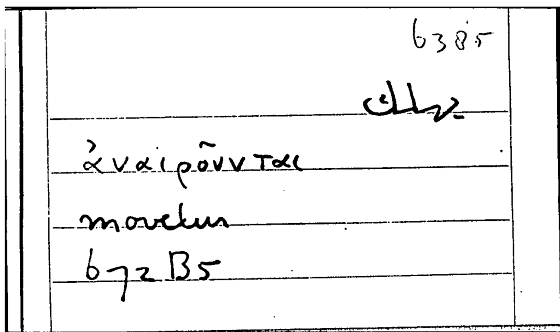 6385
ἀναιροῦνται
movetur
672 B5